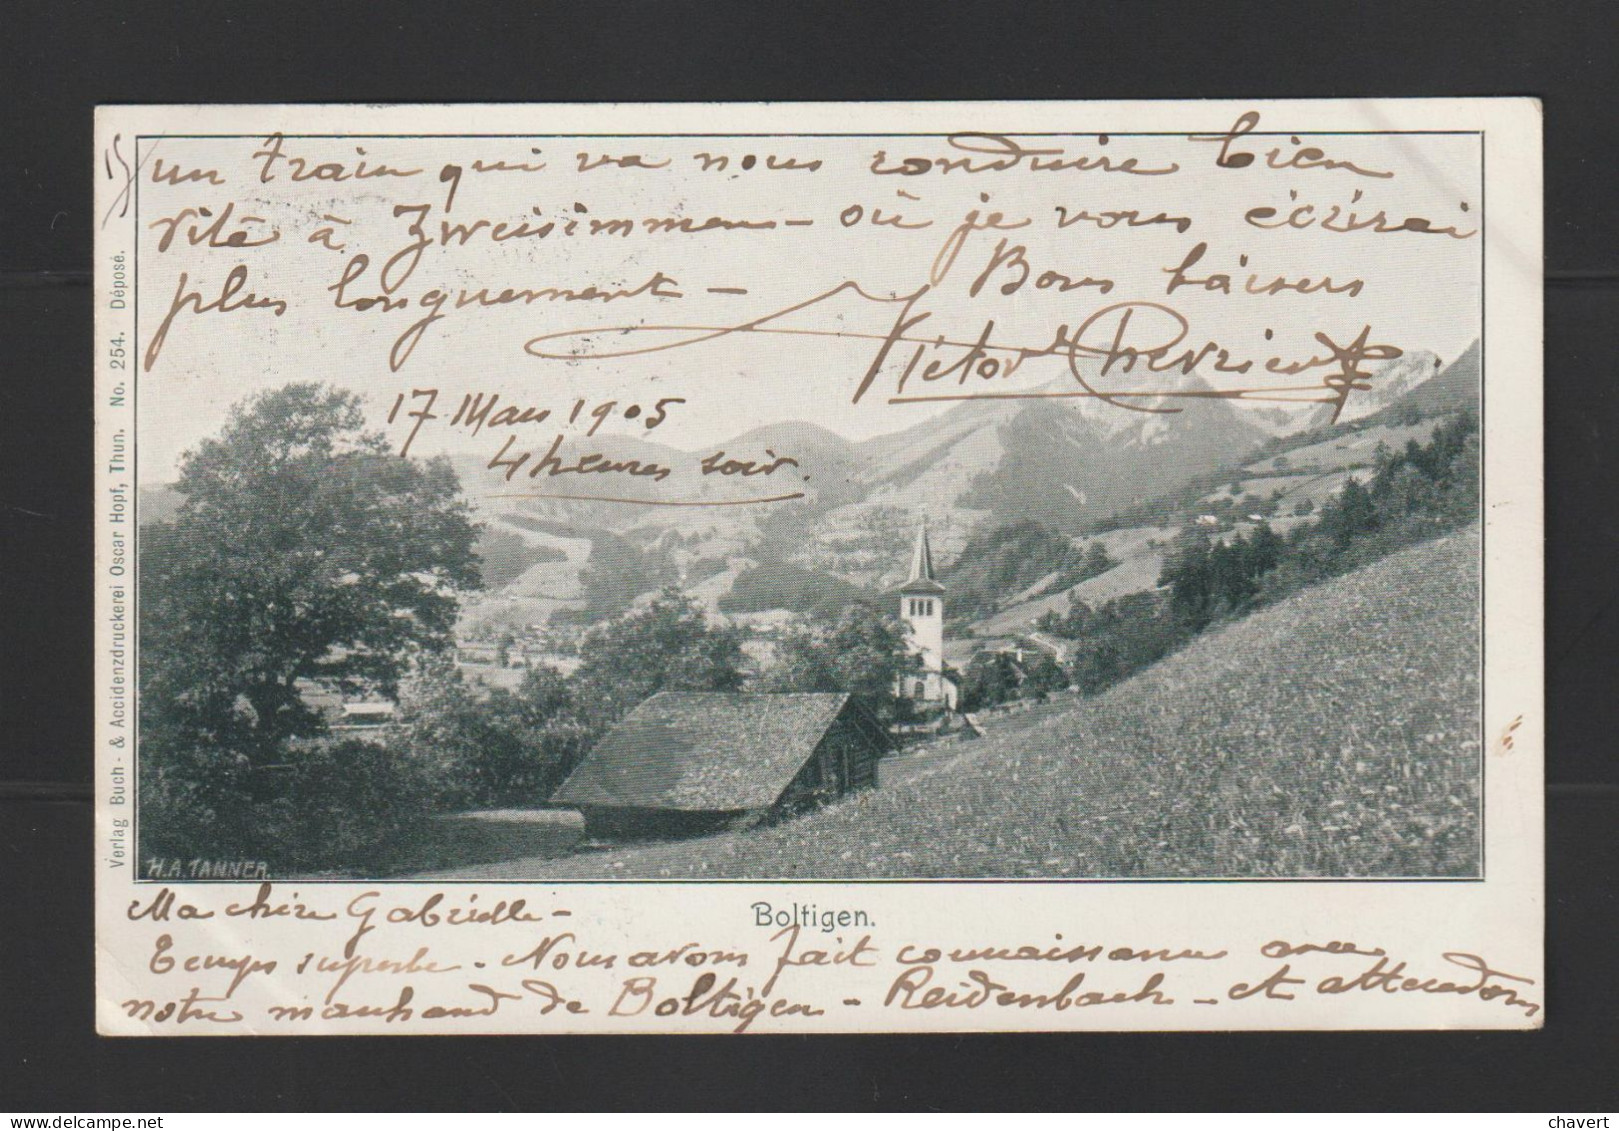 un train qui va nous conduire bien
vite à Zweisimmen – où je vous écrirai
plus longuement – Bons baisers
Victor
17 Mars 1905
4 heures soir.
Verlag Buch- & Accidenzdruckerei Oscar Hopf, Thun. No. 254. Déposé.
H.A. TANNER.
Boltigen.
Ma chère Gabrielle –
Temps superbe. Nous avons fait connaissance avec
notre marchand de Boltigen – Reidenbach – et attendons
chavert